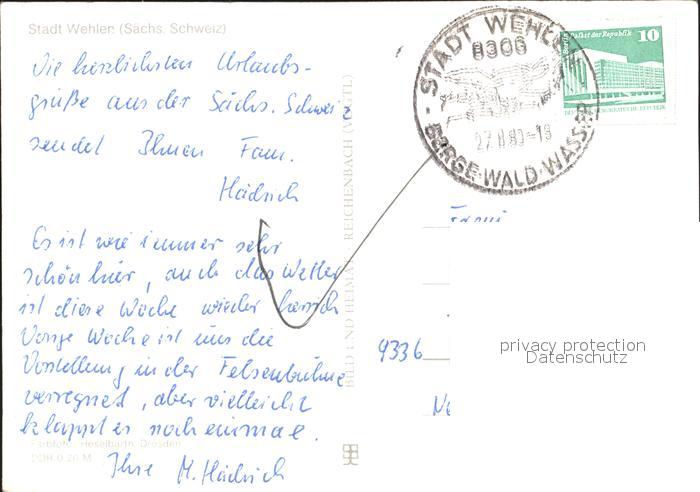 Stadt Wehlen (Sächs. Schweiz)
Die herzlichsten Urlaubs-
grüße aus der Sächs. Schweiz
sendet Ihnen Fam.
Hädrich
Es ist wie immer sehr
schön hier, auch das Wetter
ist diese Woche wieder herrlich
Vorige Woche ist uns die
Vorstellung in der Felsenbühne
verregnet, aber vielleicht
klappt es noch einmal.
Ihre M. Hädrich
Farbfoto: Heselbarth, Dresden
BILD UND HEIMAT REICHENBACH (VOGTL)
STADT WEHLEN
8306
BERGE·WALD·WASSER
Palast der Republik
Berlin
10
9336
privacy protection
Datenschutz